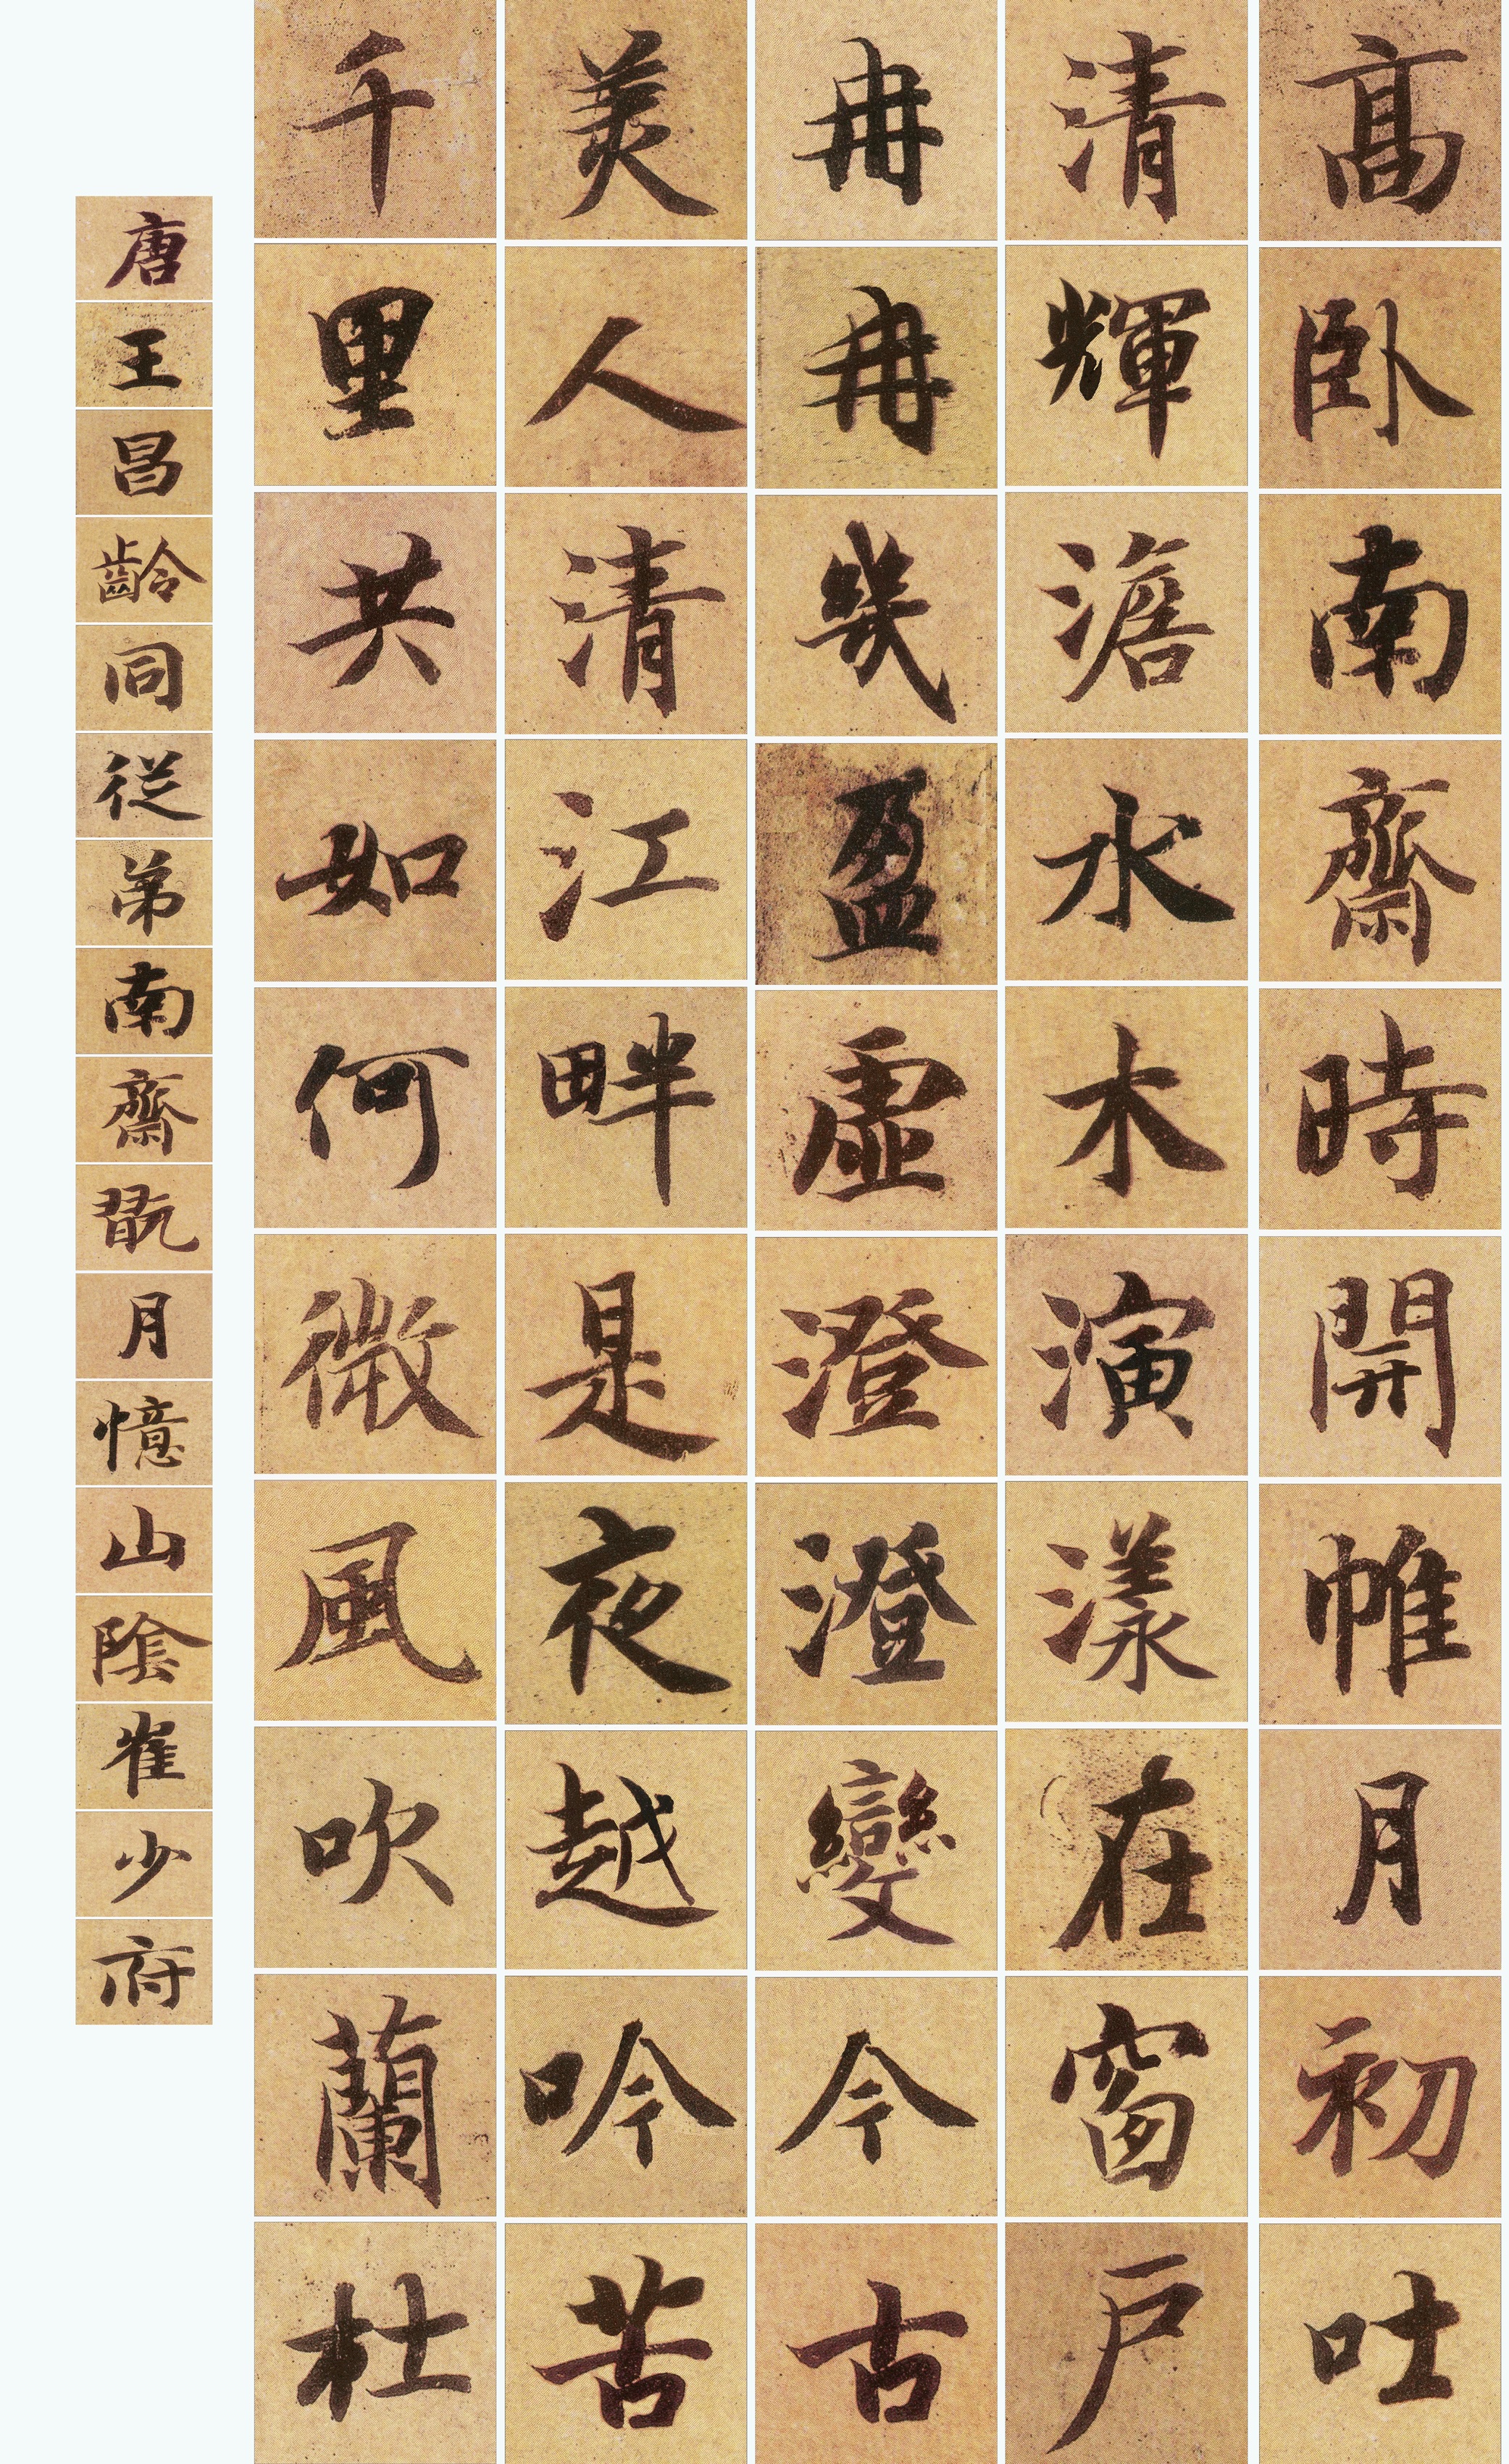 髙卧南齋時開帷月初吐
清輝澹水木演漾在窗戸
冉冉幾盈虚澄澄變今古
美人清江畔是夜越吟苦
千里共如何微風吹蘭杜
唐王昌齡同従弟南齋翫月憶山陰崔少府